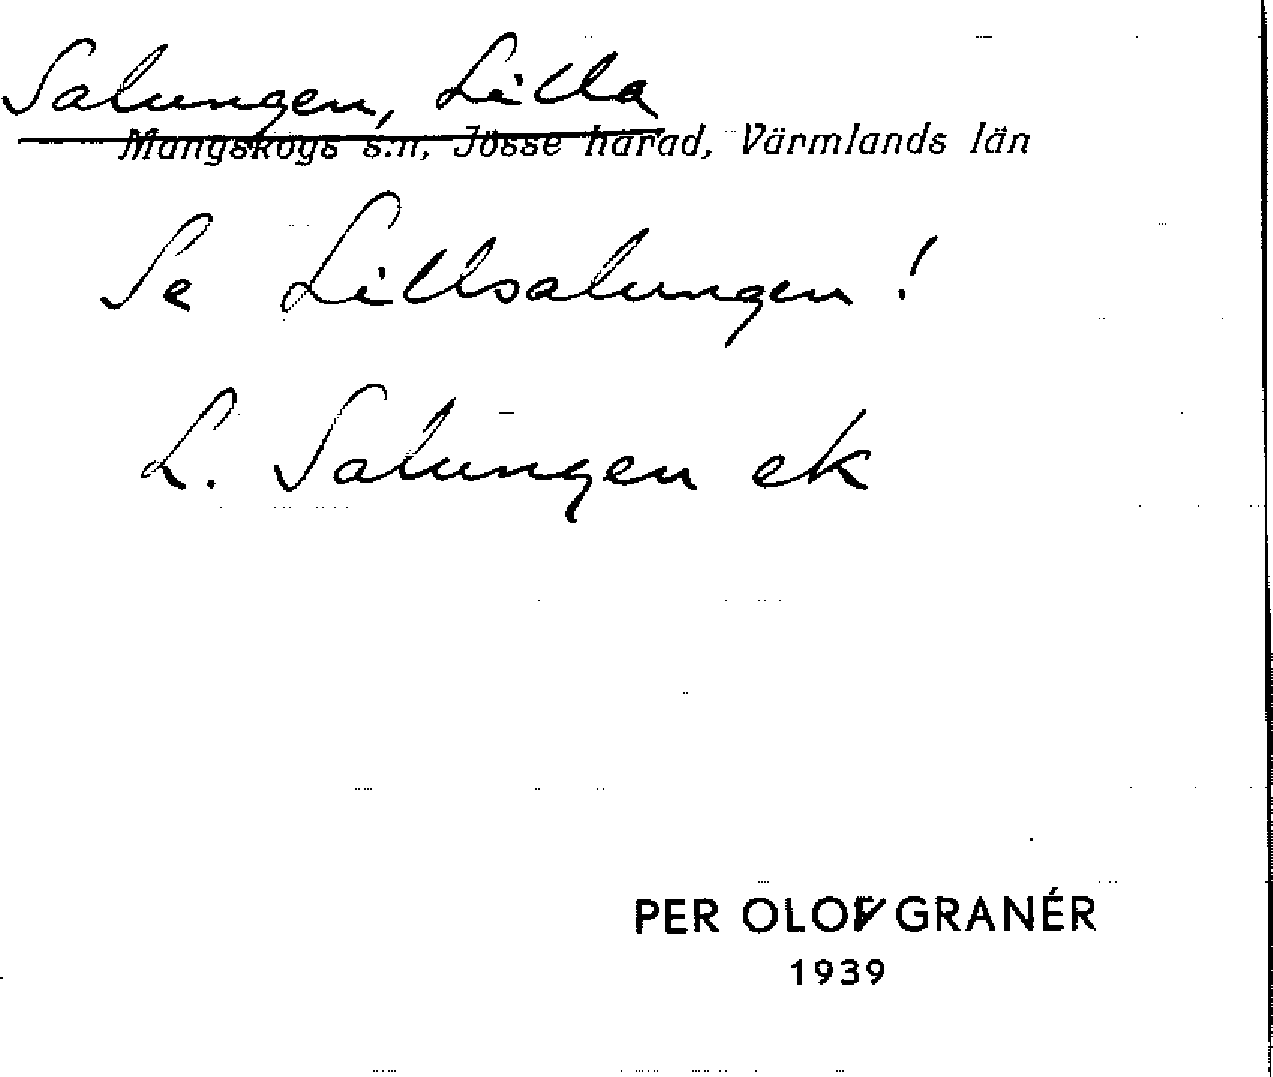 Salungen, Lilla
Mangskogs s:n, Jösse härad, Värmlands län
Se Lillsalungen!
L. Salungen ek
PER OLOF GRANÉR
1939